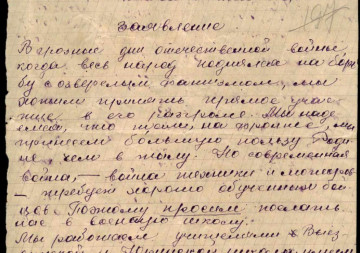 197
Заявление
В грозные дни отечественной войны,
когда весь народ поднялся на борь
бу с озверелым фашизмом, мы
хотим принять прямое учас
тие в его разгроме. Мы наде
емся, что путем на фронте, мы
принесем большую пользу Роди
не, чем в тылу. Но современная
война, – война техники и моторов
– требует хорошо обученных бой
цов. Поэтому просим послать
нас в военную школу.
Мы работаем учителями в Выез
школах